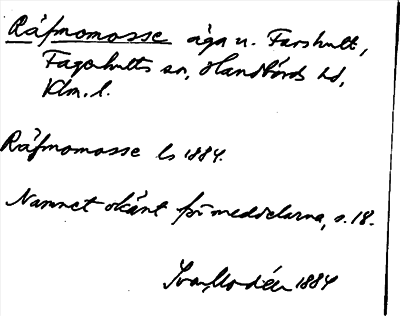 Räfmomosse äga u. Farshult,
Fagerhults sn, Handbörds hd,
Klm. l.
Räfmomosse ls 1884.
Namnet okänt för meddelarna, s. 18.
Ivar Modéer 1884